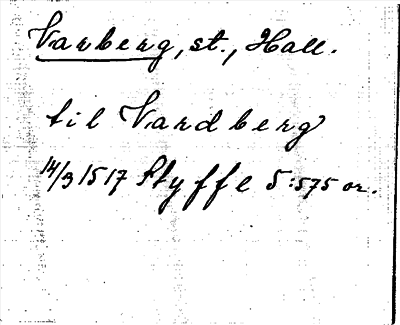 Varberg, st., Hall.
til Vardberg
14/3 1517 Styffe 5:575 or.